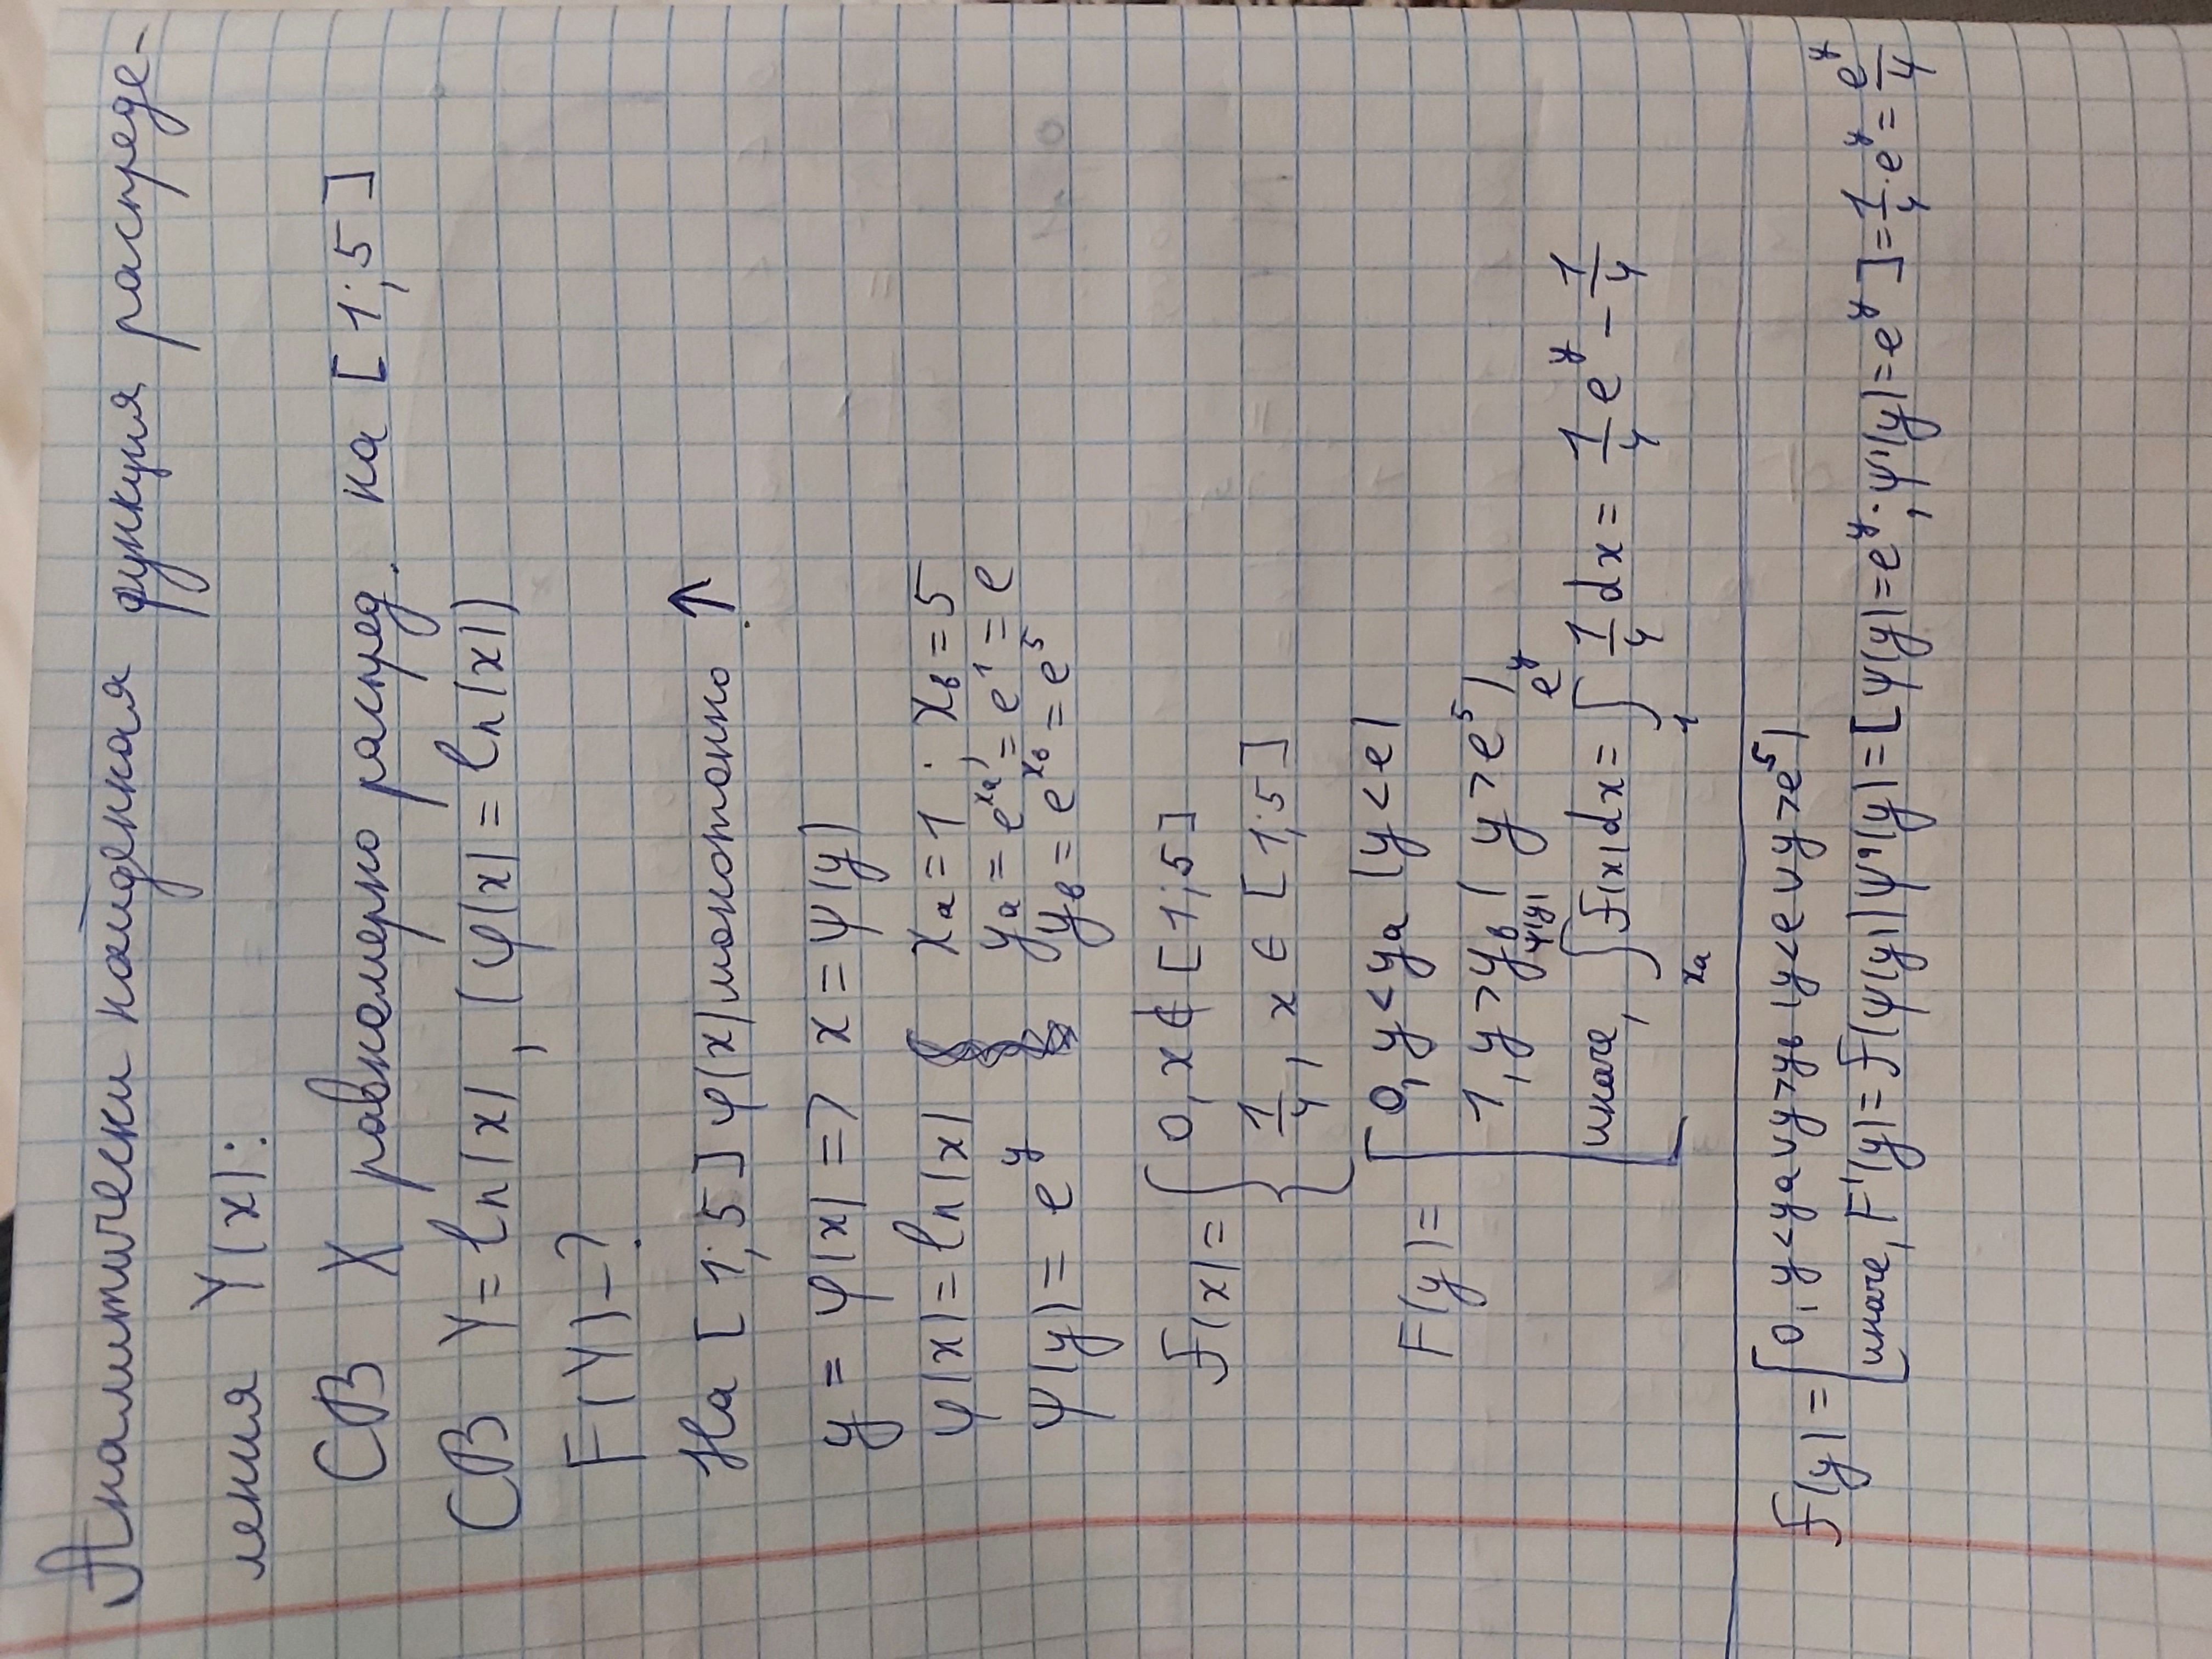 Аналитически найденная функция распреде-
ления Y(x):
СВ X равномерно распред. на [1;5]
СВ Y = ln(x), (φ(x) = ln(x))
F(Y) - ?
На [1;5] φ(x) монотонно ↑.
y = φ(x) => x = ψ(y)
φ(x) = ln(x) xa = 1; xв = 5
ψ(y) = e^y ya = e^xa = e^1 = e
yв = e^xв = e^5
f(x) = { 0, x ∉ [1;5]
1/4, x ∈ [1;5]
F(y) = [ 0, y < ya (y < e)
1, y > yв (y > e^5)
иначе, ∫_xa^ψ(y) f(x)dx = ∫_1^e^y 1/4 dx = 1/4 e^y - 1/4
f(y) = [ 0, y < ya ∨ y > yв (y < e ∨ y > e^5)
иначе, F'(y) = f(ψ(y)) ψ'(y) = [ψ(y) = e^y; ψ'(y) = e^y] = 1/4 · e^y = e^y/4